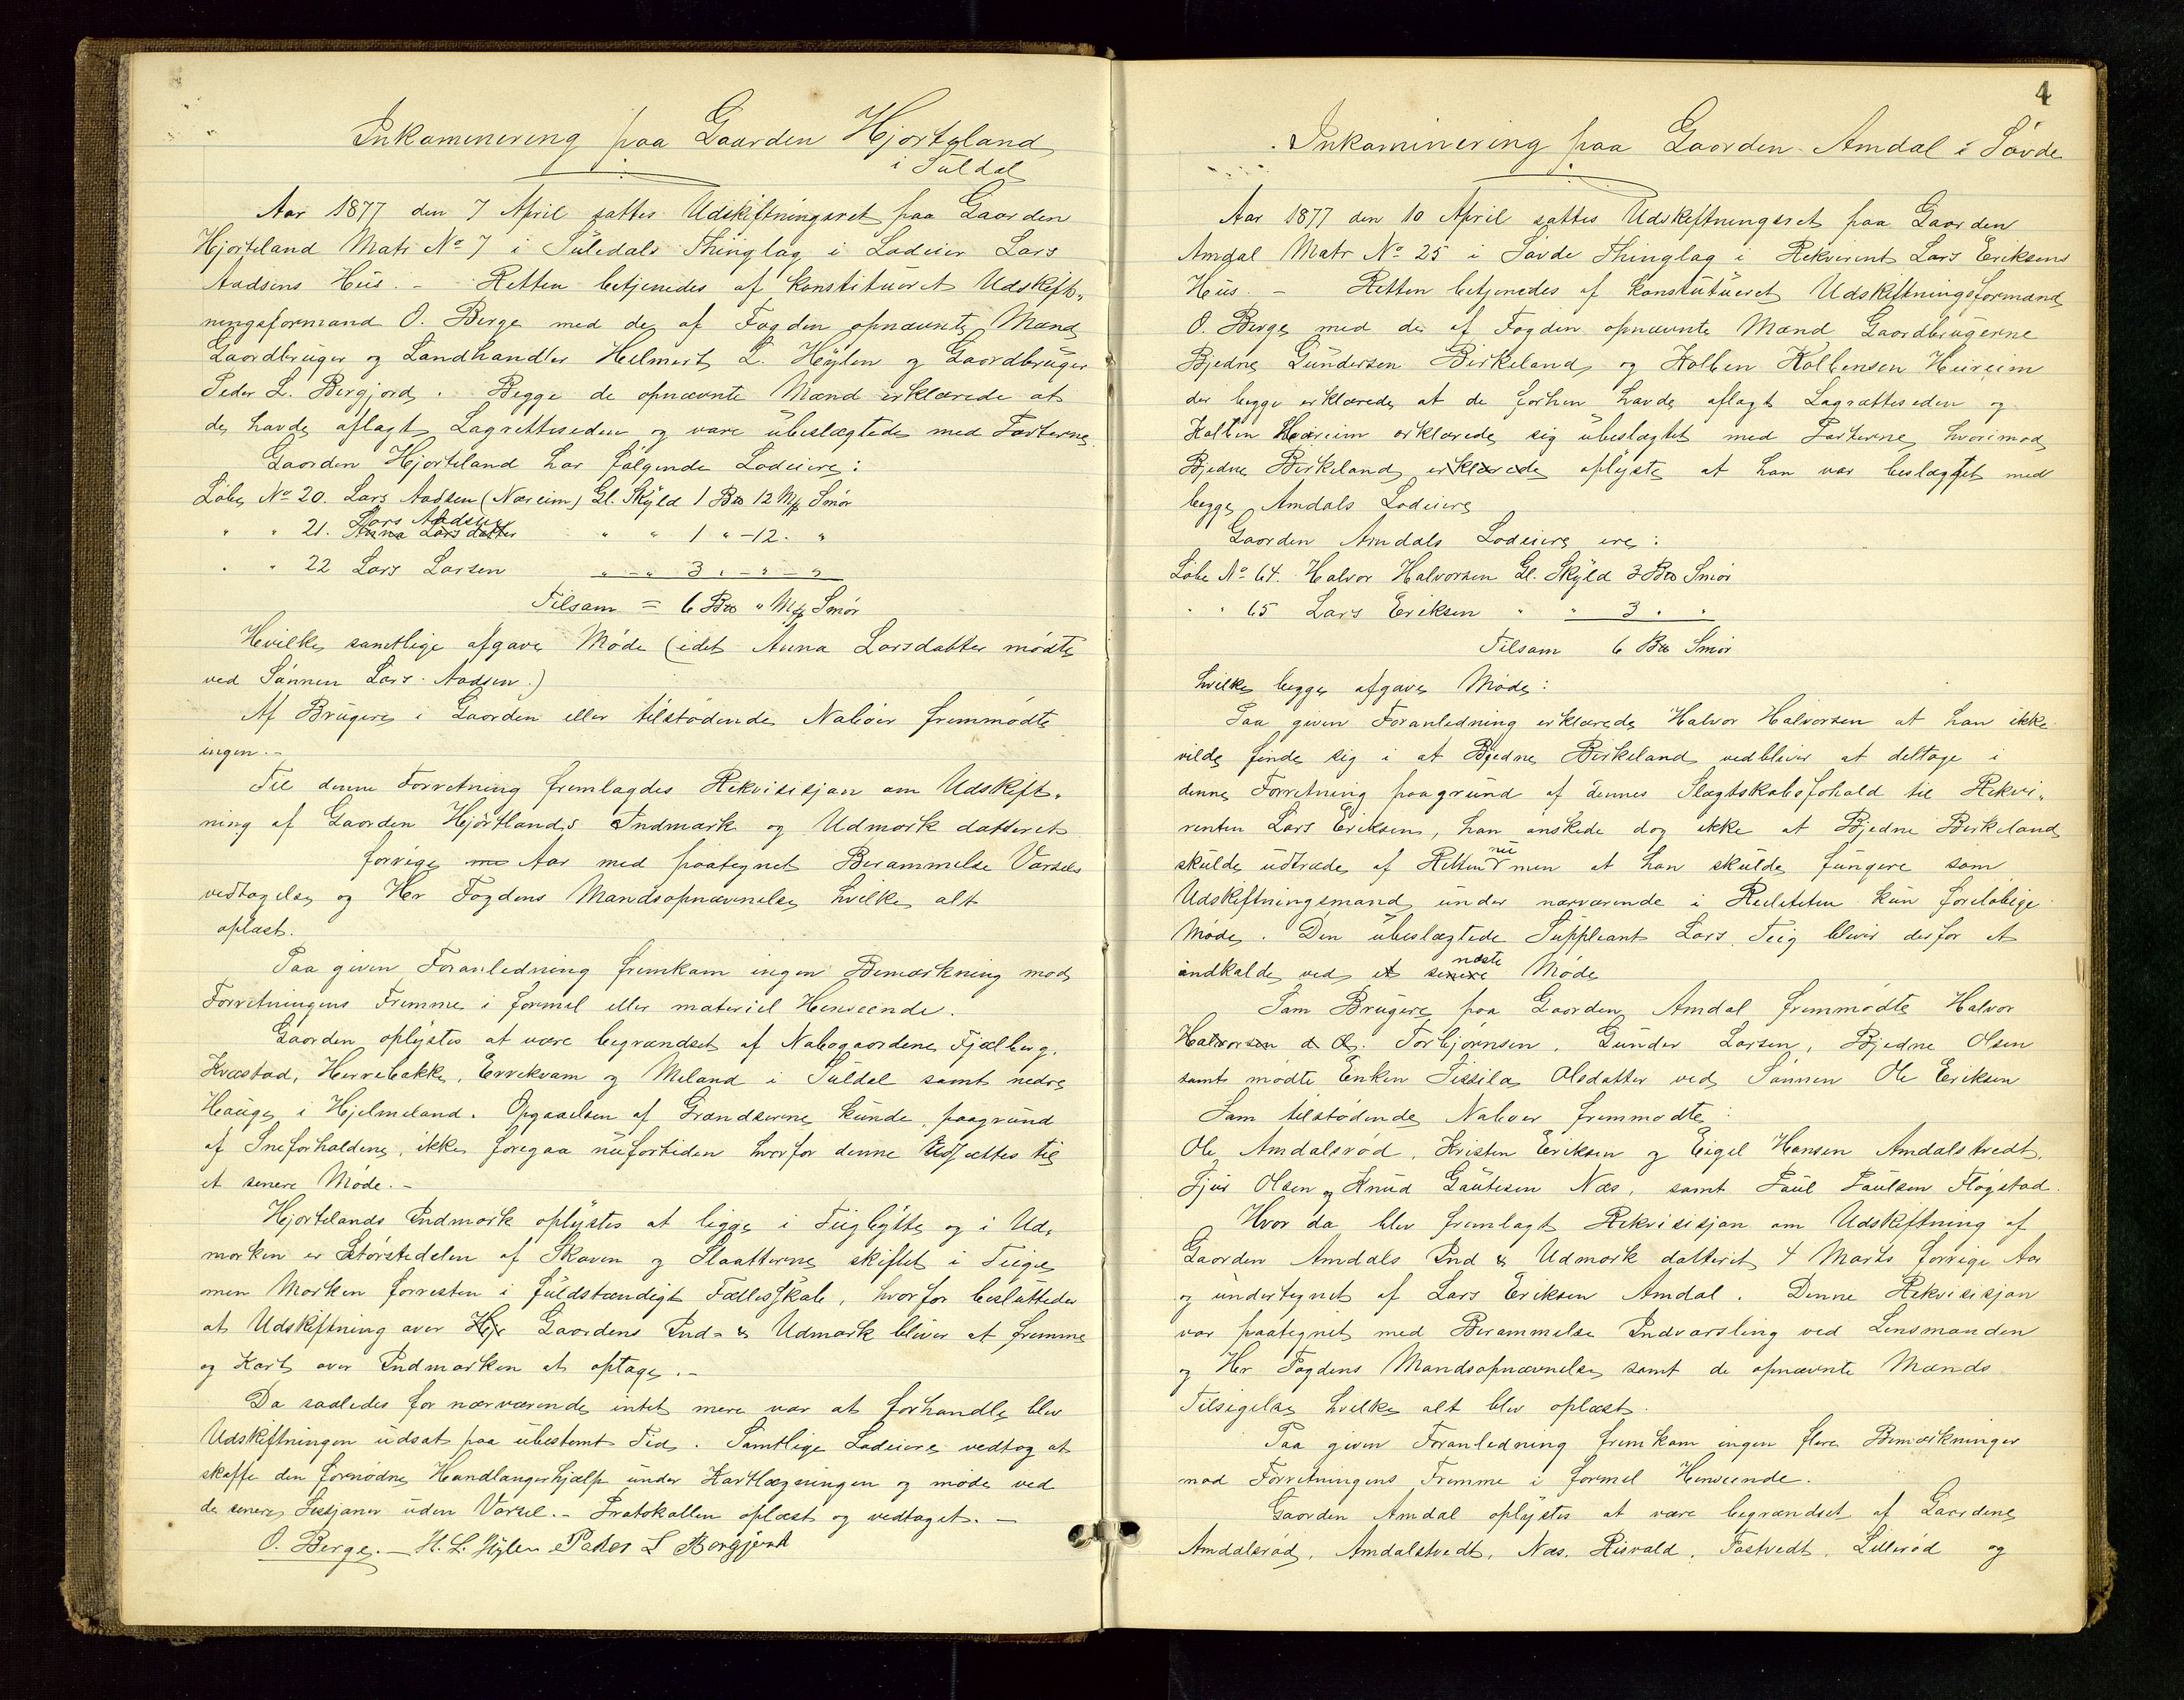 Inkaminering paa Gaarden Hjorteland
i Suldal
Aar 1877 den 7 April sattes Udskiftningsret paa Gaarden
Hjorteland Matr No 7 i Suledals Thinglag i Lodeier Lars
Aadsens Hus. - Retten betjenedes af konstitueret Udskift-
ningsformand O. Berge med de af Fogden opnævnte Mænd
Gaardbruger og Landhandler Helmert L. Høylen og Gaardbruger
Peder L. Bergjord. Begge de opnævnte Mænd erklærede at
de havde aflagt Lagretteseden og vare ubeslægtede med Parterne.
Gaarden Hjorteland har følgende Lodeiere:
Løbe No 20. Lars Aadsen (Næreim) Gl. Skyld 1 Bœ 12 Mk Smør
" " 21. Lars Aadsen Anna Larsdatter " " 1 " -12. "
" " 22 Lars Larsen " - " 3 " - " - "
Tilsam = 6 Bœ " Mk Smør
Hvilke samtlige afgave Møde (idet Anna Larsdatter mødte
ved Sønnen Lars Aadsen.)
Af Brugere i Gaarden eller tilstødende Naboer fremmødte
ingen. -
Til denne Forretning fremlagdes Rekvisisjon om Udskift-
ning af Gaarden Hjortlands Indmark og Udmark datteret
forrige Aar med paategnet Berammelse Varsels
vedtagelse og Hr Fogdens Mandsopnævnelse hvilke alt
oplæst.
Paa given Foranledning fremkom ingen Bemærkning mod
Forretningens Fremme i formel eller materiel Henseende.
Gaarden oplystes at være begrændset af Nabogaardene Fjælberg,
Kvæstad, Herrebakke, Ervekvam og Meland i Suldal samt nedre
Hauge i Hjelmeland. Opgaaelsen af Grændserne kunde, paagrund
af Sneforholdene, ikke foregaa nufortiden hvorfor denne udsættes til
et senere Møde. -
Hjortelands Indmark oplystes at ligge i Teigbytte og i Ud-
marken er Størstedelen af Skoven og Slaatterne skiftet i Teige
men Marken forresten i fuldstændigt Fællesskab, hvorfor besluttedes
at Udskiftning over Hjr Gaardens Ind- & Udmark bliver at fremme
og Kart over Indmarken at optage. -
Da saaledes for nærværende intet mere var at forhandle blev
Udskiftningen udsat paa ubestemt Tid. Samtlige Lodeiere vedtog at
skaffe den fornødne Handlangerhjælp under Kartlægningen og møde ved
de senere Sessjoner uden Varsel. - Protokollen oplæst og vedtaget. -
O. Berge. - H. L. Høylen Peder L Bergjord
4
Inkaminering paa Gaarden Amdal i Søvde
Aar 1877 den 10 April sattes Udskiftningsret paa Gaarden
Amdal Matr No 25 i Søvde Thinglag i Rekvirent Lars Eriksens
Hus. - Retten betjenedes af konstitueret Udskiftningsformand
O. Berge med de af Fogden opnævnte Mænd Gaardbrugerne
Bjedne Gundersen Birkeland og Kolben Kolbensen Heireim
der begge erklærede at de forhen havde aflagt Lagretteseden og
Kolben Heireim erklærede sig ubeslægtet med Parterne, hvorimod
Bjedne Birkeland erklærede oplyste at han var beslægtet med
begge Amdals Lodeiere
Gaarden Amdals Lodeiere ere:
Løbe No 64. Halvor Halvorsen Gl. Skyld 3 Bœ Smør
" " 65 Lars Eriksen " " 3 " "
Tilsam 6 Bœ Smør
hvilke begge afgave Møde:
Paa given Foranledning erklærede Halvor Halvorsen at han ikke
vilde finde sig i at Bjedne Birkeland vedbliver at deltage i
denne Forretning paagrund af dennes Slægtskabsforhold til Rekvi-
renten Lars Eriksen, han ønskede dog ikke at Bjedne Birkeland
skulde udtræde af Retten nu men at han skulde fungere som
Udskiftningsmand under nærværende i Realiteten kun foreløbige
Møde. Den ubeslægtede Suppleant Lars Teig bliver derfor at
indkalde ved et senere næste Møde
Som Brugere paa Gaarden Amdal fremmødte Halvor
Halvorsen & O. Torbjørnsen, Gunder Larsen, Bjedne Olsen
samt mødte Enken Sissila Olsdatter ved Sønnen Ole Eriksen
Som tilstødende Naboer fremmødte:
Ole Amdalsrød, Kristen Eriksen og Eigel Hansen Amdalstvedt,
Sjur Olsen og Knud Gautesen Næs, samt Paul Paulsen Fløgstad.
Hvor da blev fremlagt Rekvisisjon om Udskiftning af
Gaarden Amdals Ind & Udmark datteret 4 Marts forrige Aar
og undertegnet af Lars Eriksen Amdal. Denne Rekvisisjon
var paategnet med Berammelse Indvarsling ved Lensmanden
og Hr Fogdens Mandsopnævnelse samt de opnævnte Mænds
Tilsigelse hvilke alt blev oplæst.
Paa given Foranledning fremkom ingen flere Bemærkninger
mod Forretningens Fremme i formel Henseende.
Gaarden Amdal oplystes at være begrændset af Gaardene
Amdalsrød, Amdalstvedt, Næs, Risvald, Fastvedt, Lillerød og